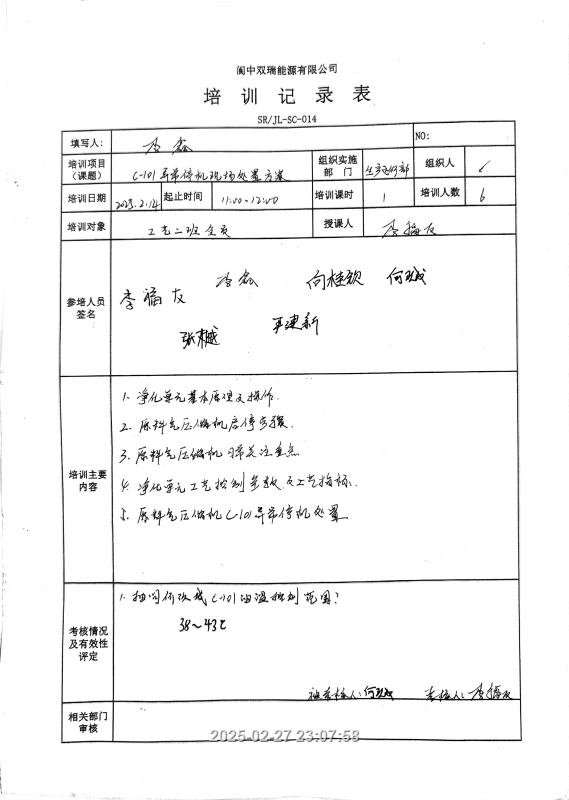 阆中双瑞能源有限公司
培训记录表
SR/JL-SC-014
填写人: 李鑫 NO:
培训项目(课题) C-101异常停机现场处置方案 组织实施部门 生产运行部 组织人
培训日期 2025.2.14 起止时间 11:00-12:00 培训课时 1 培训人数 6
培训对象 工艺二班全员 授课人 李福友
参培人员签名
李福友 李鑫 向桂钦 何
张 王建新
培训主要内容
1. 净化单元基本原理及操作.
2. 原料气压缩机启停步骤.
3. 原料气压缩机日常关注重点
4. 净化单元工艺控制参数及工艺指标.
5. 原料气压缩机C-101异常停机处置
考核情况及有效性评定
1. 抽问何 C-101油温控制范围?
38~43℃
被考核人: 何 考核人: 李福友
相关部门审核
2025-02-27 23:07:58